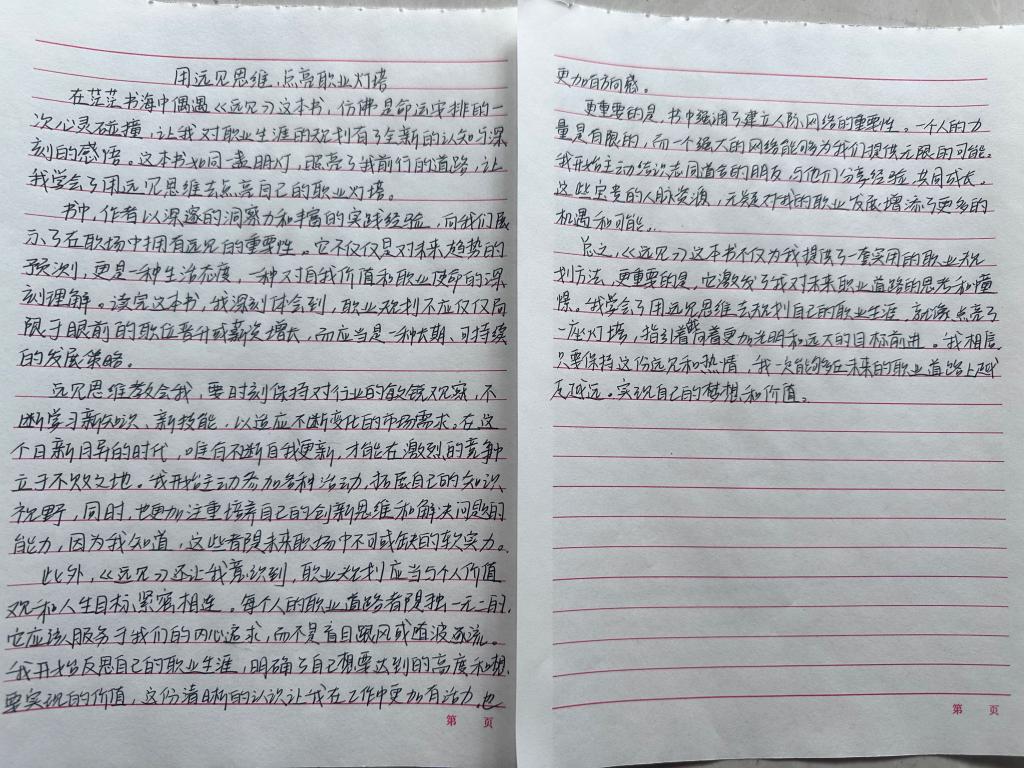 用远见思维,点亮职业灯塔
在茫茫书海中偶遇《远见》这本书,仿佛是命运安排的一
次心灵碰撞,让我对职业生涯的规划有了全新的认知与深
刻的感悟。这本书如同一盏明灯,照亮了我前行的道路,让
我学会了用远见思维去点亮自己的职业灯塔。
书中,作者以深邃的洞察力和丰富的实践经验,向我们展
示了在职场中拥有远见的重要性。它不仅仅是对未来趋势的
预测,更是一种生活态度,一种对自我价值和职业使命的深
刻理解。读完这本书,我深刻体会到,职业规划不应仅仅局
限于眼前的职位晋升或薪资增长,而应当是一种长期、可持续
的发展策略。
远见思维教会我,要时刻保持对行业的敏锐观察,不
断学习新知识、新技能,以适应不断变化的市场需求。在这
个日新月异的时代,唯有不断自我更新,才能在激烈的竞争中
立于不败之地。我开始主动参加各种活动,拓展自己的知识
视野,同时,也更加注重培养自己的创新思维和解决问题的
能力,因为我知道,这些都是未来职场中不可或缺的软实力。
此外,《远见》还让我意识到,职业规划应当与个人价值
观和人生目标紧密相连。每个人的职业道路都是独一无二的,
它应该服务于我们的内心追求,而不是盲目跟风或随波逐流。
我开始反思自己的职业生涯,明确了自己想要达到的高度和想
要实现的价值,这份清晰的认识让我在工作中更加有活力,也
更加有方向感。
更重要的是,书中强调了建立人际网络的重要性。一个人的力
量是有限的,而一个强大的网络能够为我们提供无限的可能。
我开始主动结识志同道合的朋友,与他们分享经验,共同成长。
这些宝贵的人脉资源,无疑对我的职业发展增添了更多的
机遇和可能。
总之,《远见》这本书不仅为我提供了一套实用的职业规
划方法,更重要的是,它激发了我对未来职业道路的思考和憧
憬。我学会了用远见思维去规划自己的职业生涯,就像点亮了
一座灯塔,指引着我向着更加光明和远大的目标前进。我相信,
只要保持这份远见和热情,我一定能够在未来的职业道路上越
走越远。实现自己的梦想和价值。
第 页
第 页